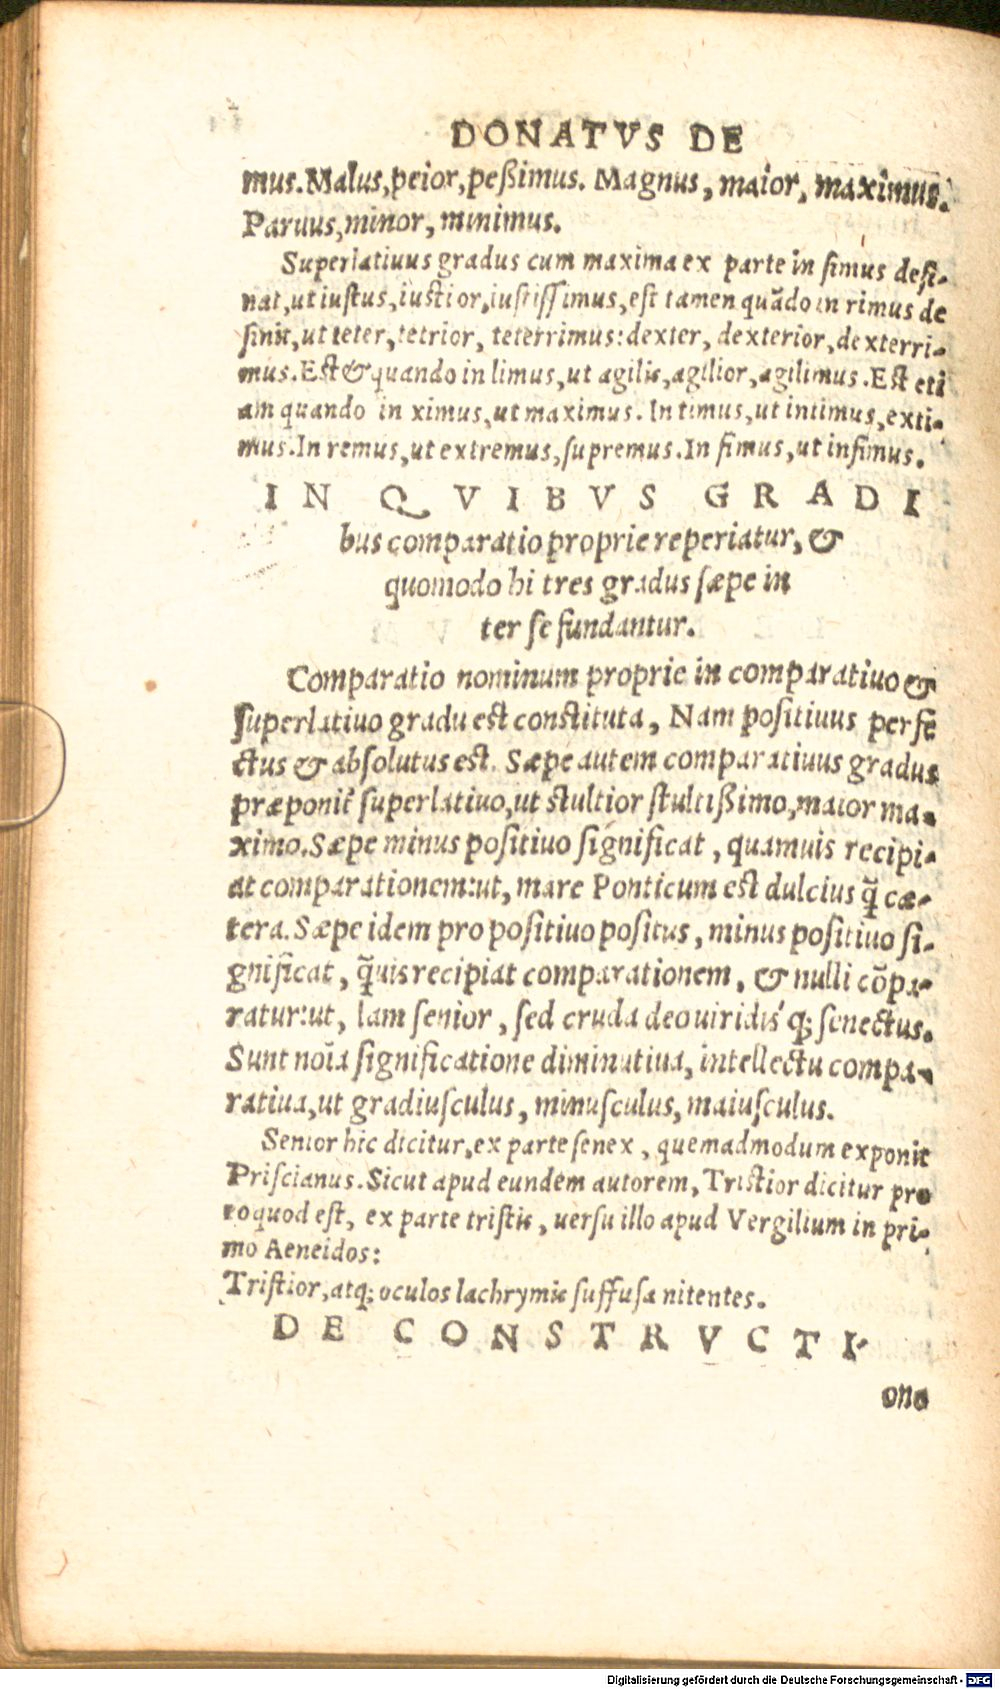 DONATVS DE
mus. Malus, peior, peßimus. Magnus, maior, maximus.
Paruus, minor, minimus.
Superlatiuus gradus cum maxima ex parte in simus desi-
nat, ut iustus, iustior, iustissimus, est tamen quãdo in rimus de
sinit, ut teter, tetrior, teterrimus: dexter, dexterior, dexterri-
mus. Est & quando in limus, ut agilis, agilior, agilimus. Est eti
am quando in ximus, ut maximus. In timus, ut intimus, exti-
mus. In remus, ut extremus, supremus. In fimus, ut infimus.
IN QVIBVS GRADI
bus comparatio proprie reperiatur, &
quomodo hi tres gradus sæpe in
ter se fundantur.
Comparatio nominum proprie in comparatiuo &
superlatiuo gradu est constituta, Nam positiuus perfe
ctus & absolutus est. Sæpe autem comparatiuus gradus
præponit̃ superlatiuo, ut stultior stultißimo, maior ma-
ximo. Sæpe minus positiuo significat, quamuis recipi-
at comparationem: ut, mare Ponticum est dulcius q̃ cæ-
tera. Sæpe idem pro positiuo positus, minus positiuo si-
gnificat, q̃uis recipiat comparationem, & nulli cõpa-
ratur: ut, Iam senior, sed cruda deo uiridis q; senectus.
Sunt noĩa significatione diminutiua, intellectu compa-
ratiua, ut gradiusculus, minusculus, maiusculus.
Senior hic dicitur, ex parte senex, quemadmodum exponit
Priscianus. Sicut apud eundem autorem, Tristior dicitur pro
eo quod est, ex parte tristis, uersu illo apud Vergilium in pri-
mo Aeneidos:
Tristior, atq; oculos lachrymis suffusa nitentes.
DE CONSTRVCTI-
one
Digitalisierung gefördert durch die Deutsche Forschungsgemeinschaft - DFG